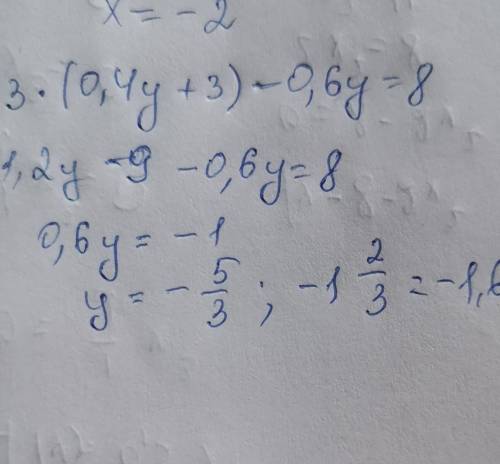 x = -2
3 · (0,4y + 3) - 0,6y = 8
1,2y - 9 - 0,6y = 8
0,6y = -1
y = - 5/3 ; -1 2/3 = -1,6